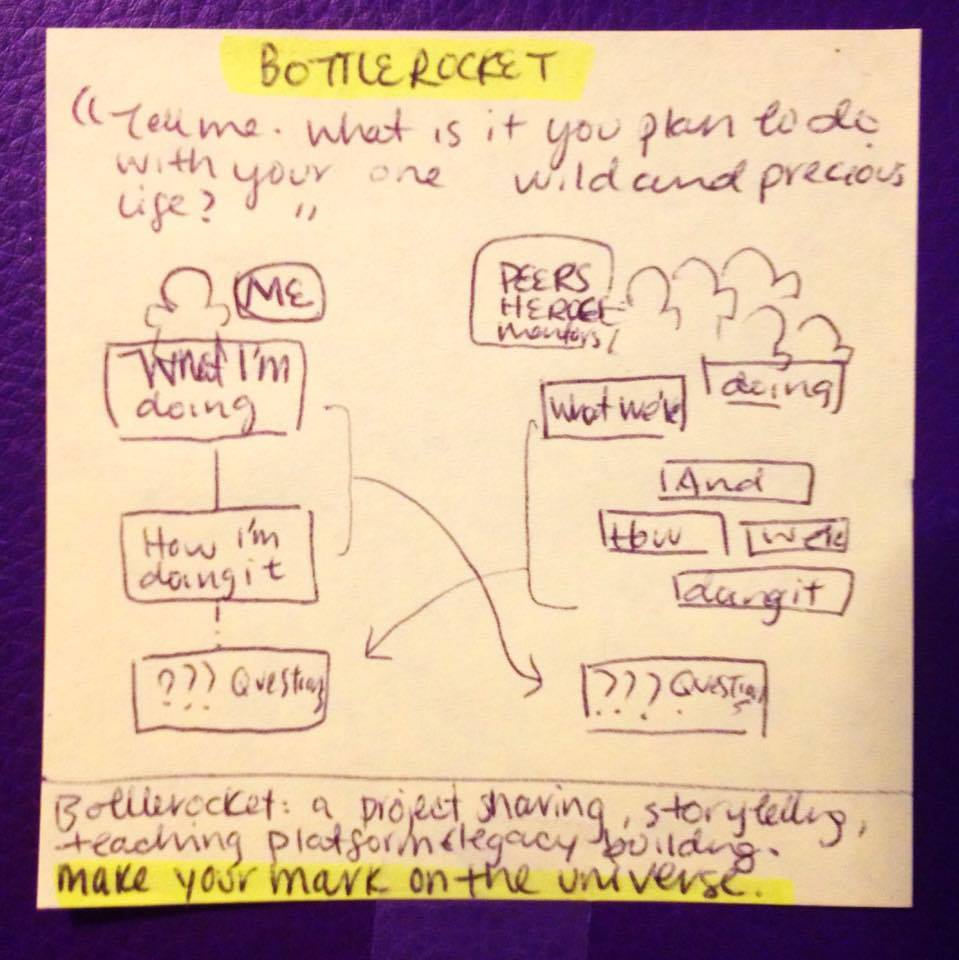 BOTTLEROCKET
"Tell me. What is it you plan to do
with your one wild and precious
life? "
ME
What I'm
doing
How I'm
doing it
??? Questions
PEERS
HEROES
mentors
What we're
doing
And
How
we're
doing it
??? Questions
Bottlerocket: a project sharing, storytelling,
teaching platform & legacy building.
make your mark on the universe.